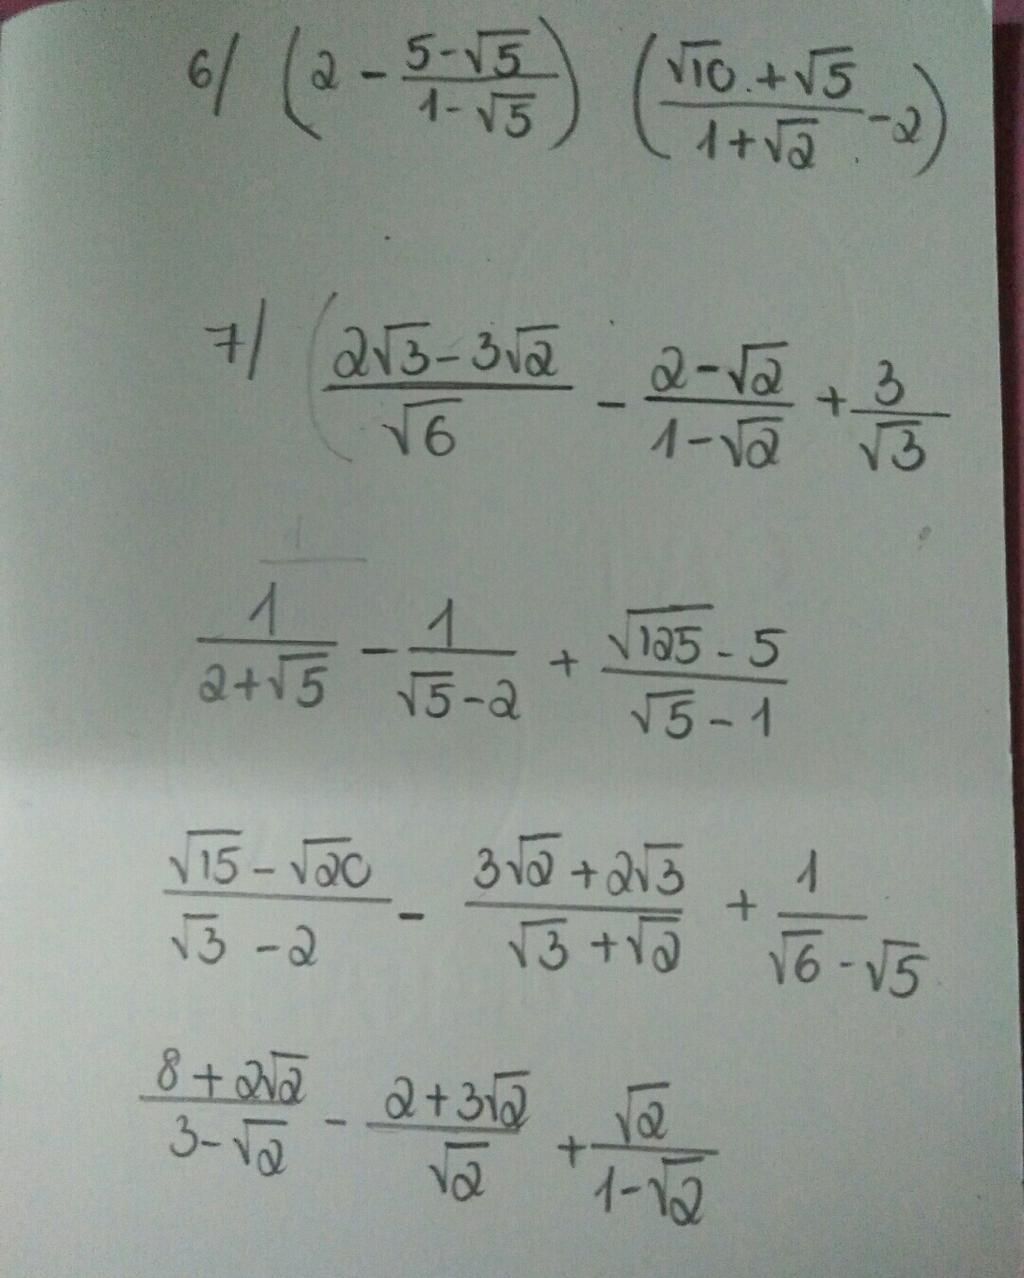 6/ (2 - (5-√5)/(1-√5)) ((√10 + √5)/(1+√2) - 2)
7/ (2√3 - 3√2)/√6 - (2-√2)/(1-√2) + 3/√3
1/(2+√5) - 1/(√5-2) + (√125 - 5)/(√5 - 1)
(√15 - √20)/(√3 - 2) - (3√2 + 2√3)/(√3 + √2) + 1/(√6 - √5)
(8 + 2√2)/(3-√2) - (2+3√2)/√2 + √2/(1-√2)